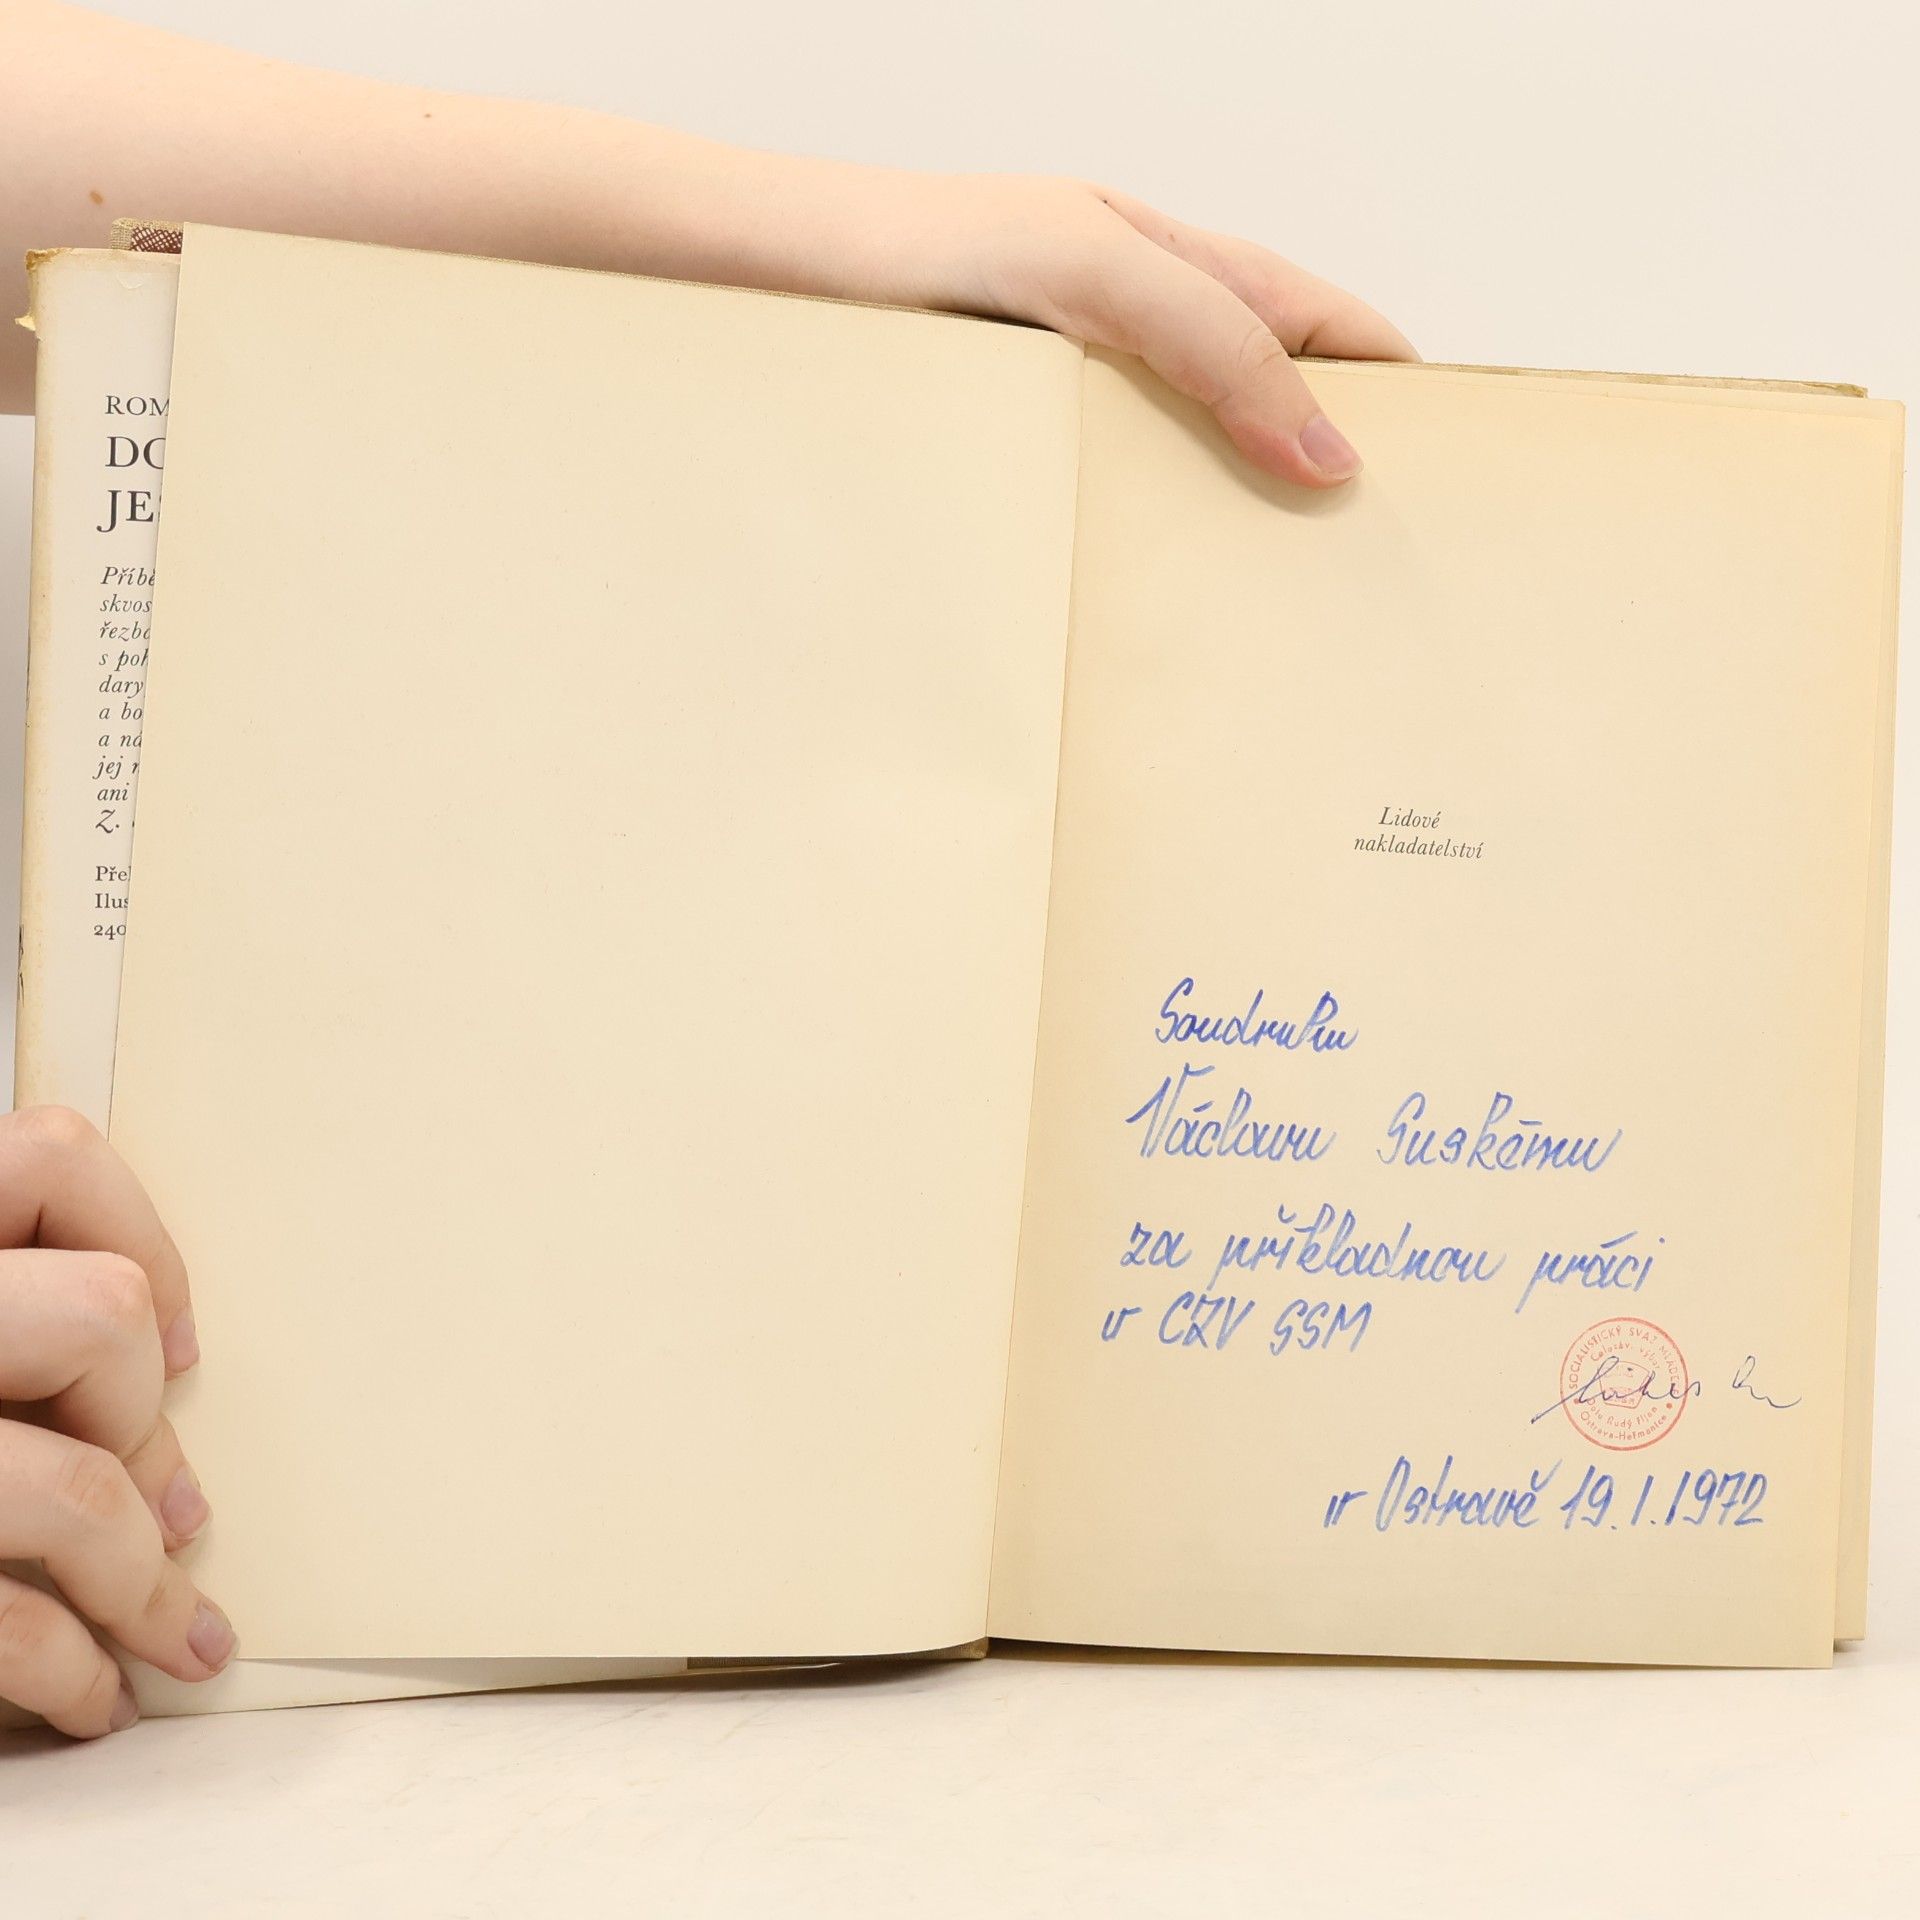 ROM
DO
JES
Příbě
skvos
řezbo
s poh
dary
a bo
a ná
jej
ani
Z.
Pře
Ilus
240
Lidové
nakladatelství
Soudruhu
Václavu Suskému
za příkladnou práci
v CZV SSM
SOCIALISTICKÝ SVAZ MLÁDEŽE
Celozáv. výbor
Dolu Rudý říjen
Ostrava-Heřmanice
v Ostravě 19.1.1972